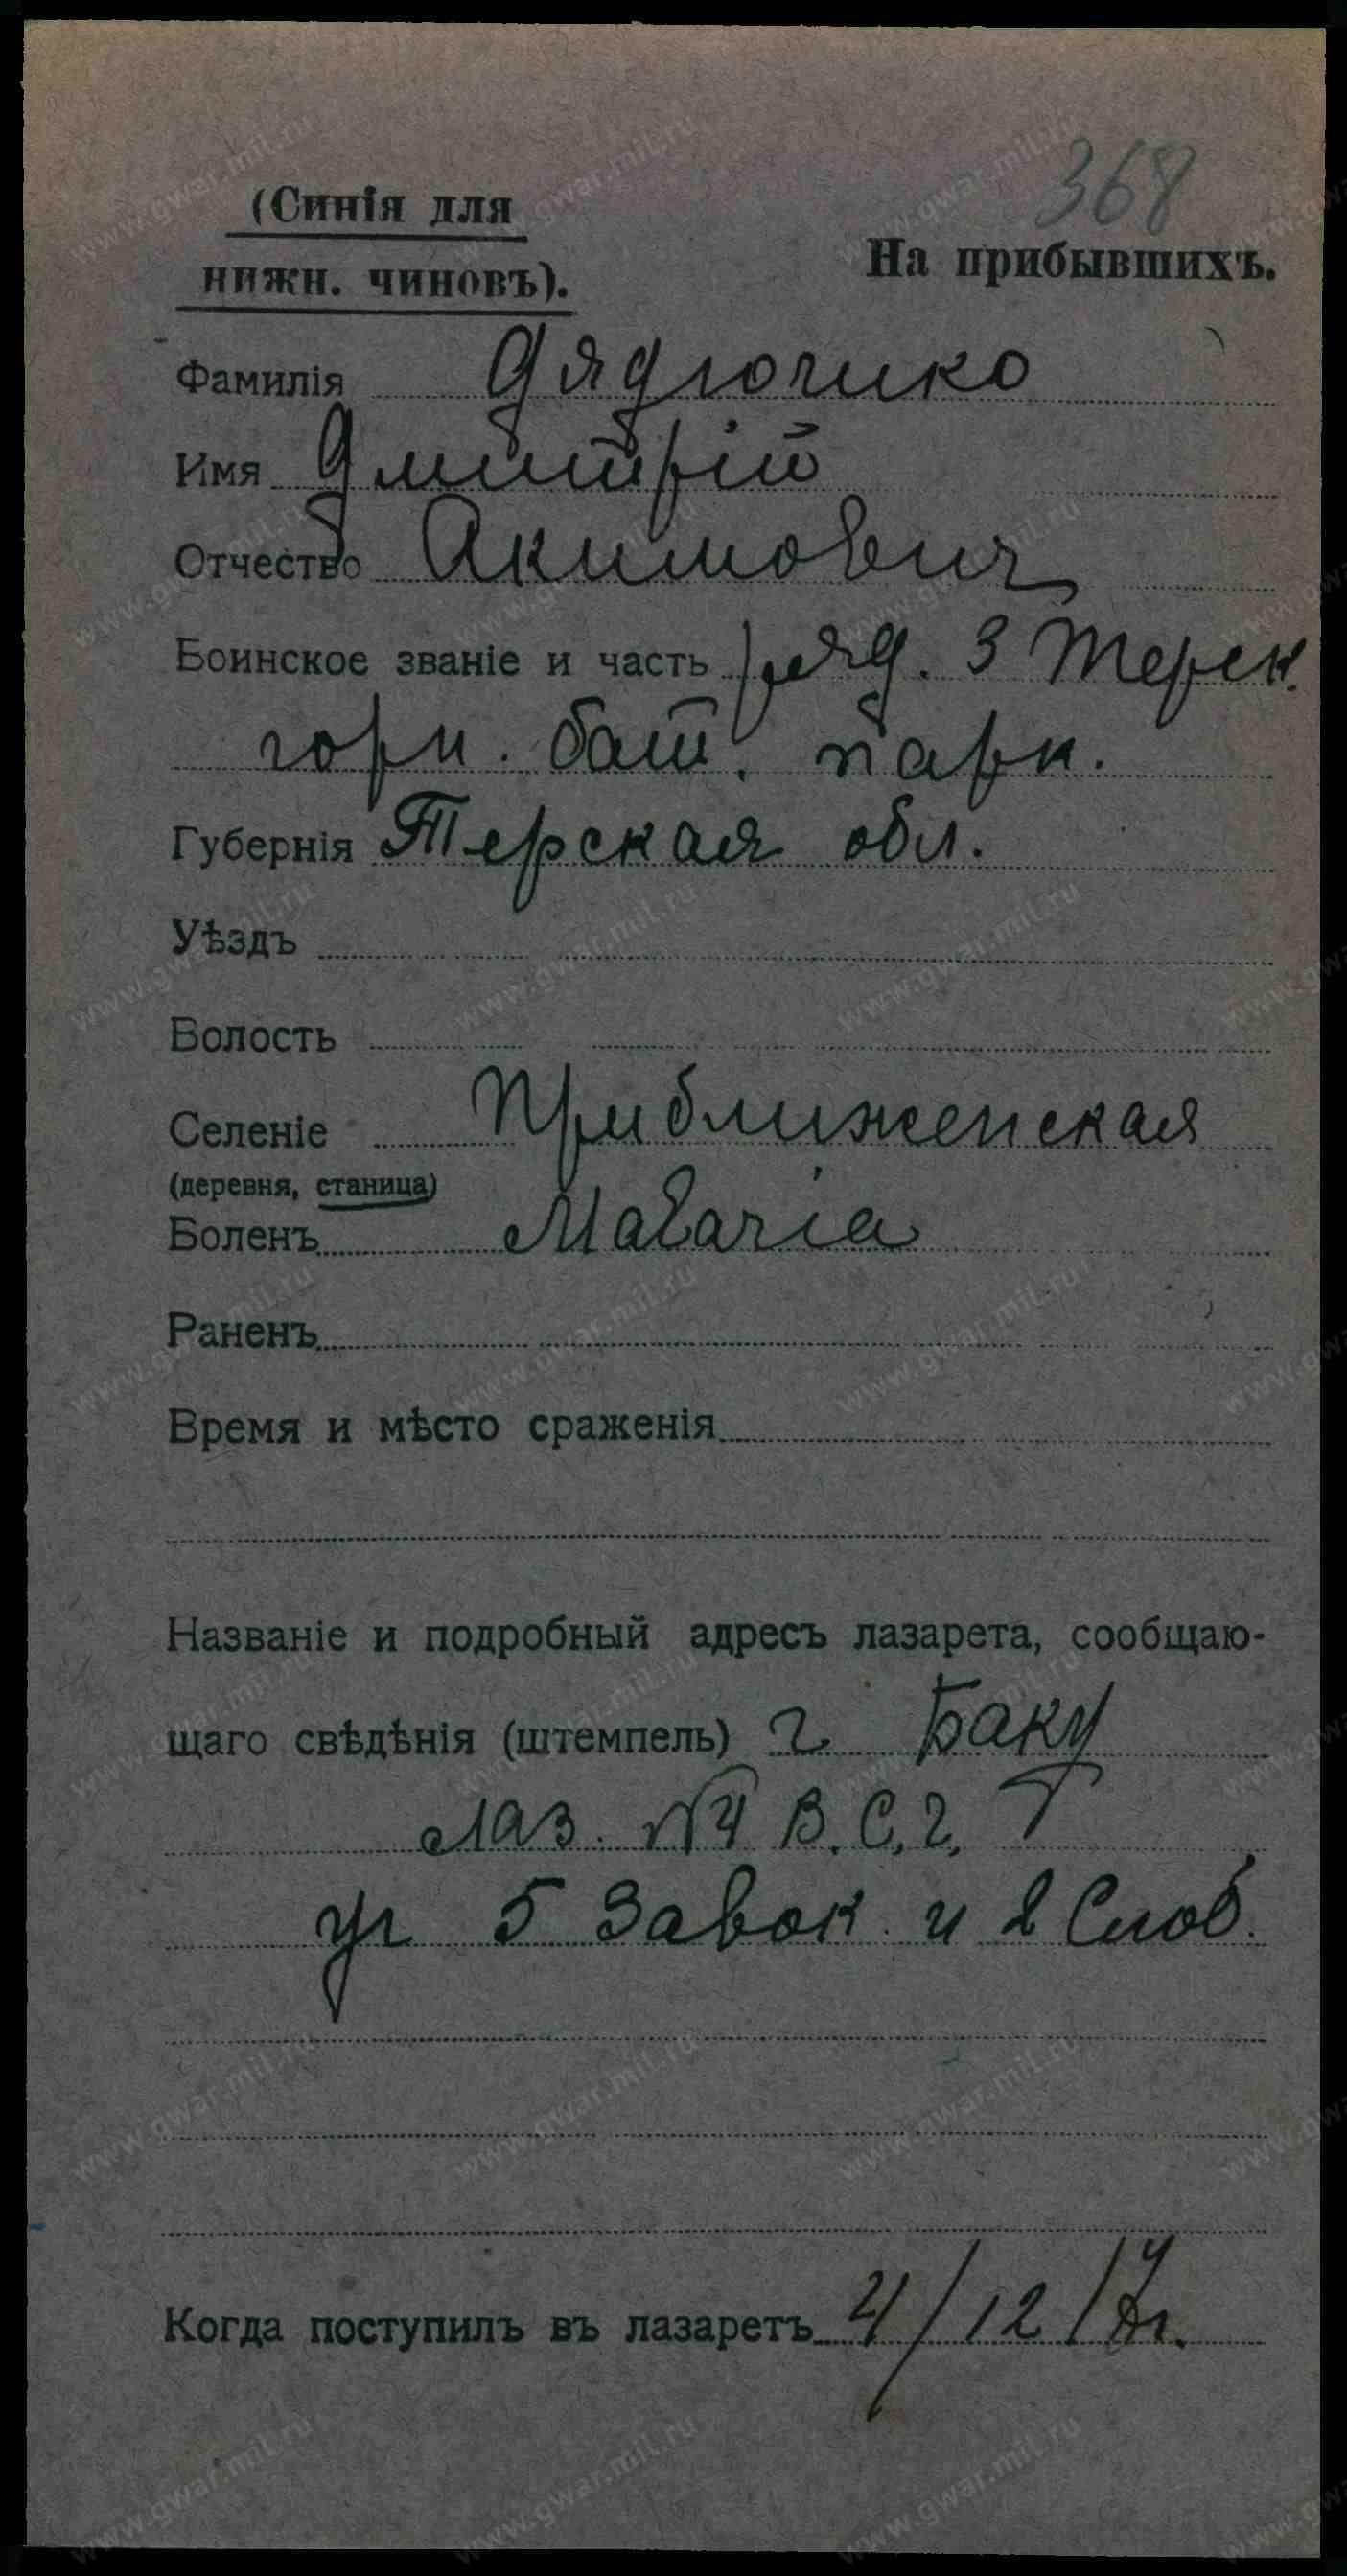 368
(Синія для
нижн. чиновъ).
На прибывшихъ.
Фамилія Дядючико
Имя Дмитрій
Отчество Акимович
Воинское званіе и часть ряд. 3 Терск.
горн. бат. парк.
Губернія Терская обл.
Уѣздъ
Волость
Селеніе Приближенская
(деревня, станица)
Боленъ Malaria
Раненъ
Время и мѣсто сраженія
Названіе и подробный адресъ лазарета, сообщаю-
щаго свѣдѣнія (штемпель) г. Баку
Лаз. №4 В. С. Г.
уг 5 Завок. и 2 Слоб.
Когда поступилъ въ лазаретъ 4/12/